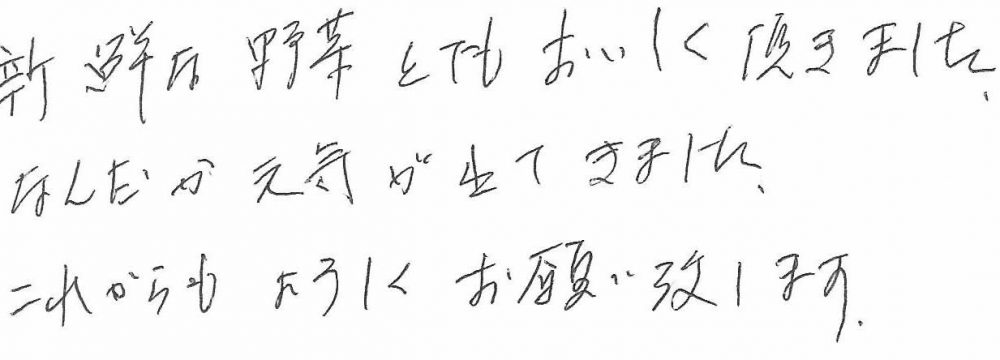 新鮮な野菜とてもおいしく頂きました、
なんだか元気が出てきました、
これからもよろしくお願い致します.